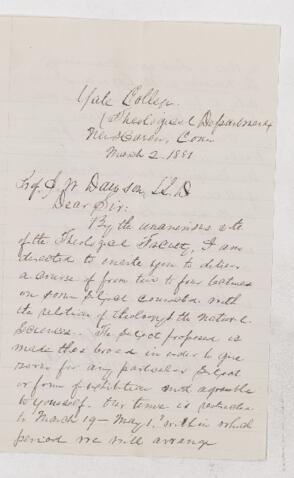 Yale College.
(Theological Department)
New Haven, Conn
March 2. 1881
Prof J. W Dawson, LL.D
Dear Sir:
By the unanimous vote
of the Theological Faculty, I am
directed to invite you to deliver
a course of from two to four lectures
on some subject connected with
the relation of theology & the natural
sciences. The subject proposed is
made thus broad in order to give
room for any particular subject
or form of exhibition most agreeable
to yourself. Our time is restricted
to March 19 - May 1. within which
period we will arrange